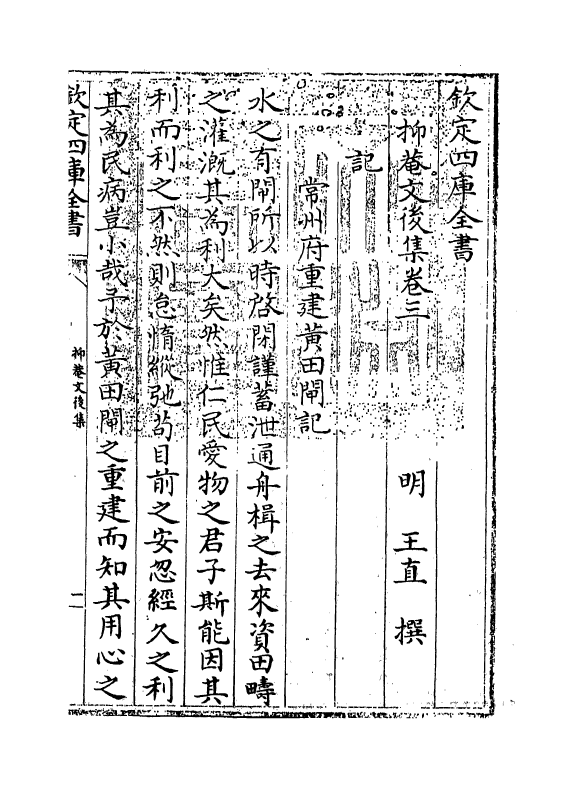 欽定四庫全書
抑菴文後集卷三
明　王直　撰
記
常州府重建黃田閘記
水之有閘所以時啓閉謹蓄泄通舟楫之去來資田疇
之灌溉其為利大矣然惟仁民愛物之君子斯能因其
利而利之不然則怠惰縱弛苟目前之安忽經久之利
其為民病豈小哉予於黃田閘之重建而知其用心之
欽定四庫全書
抑菴文後集